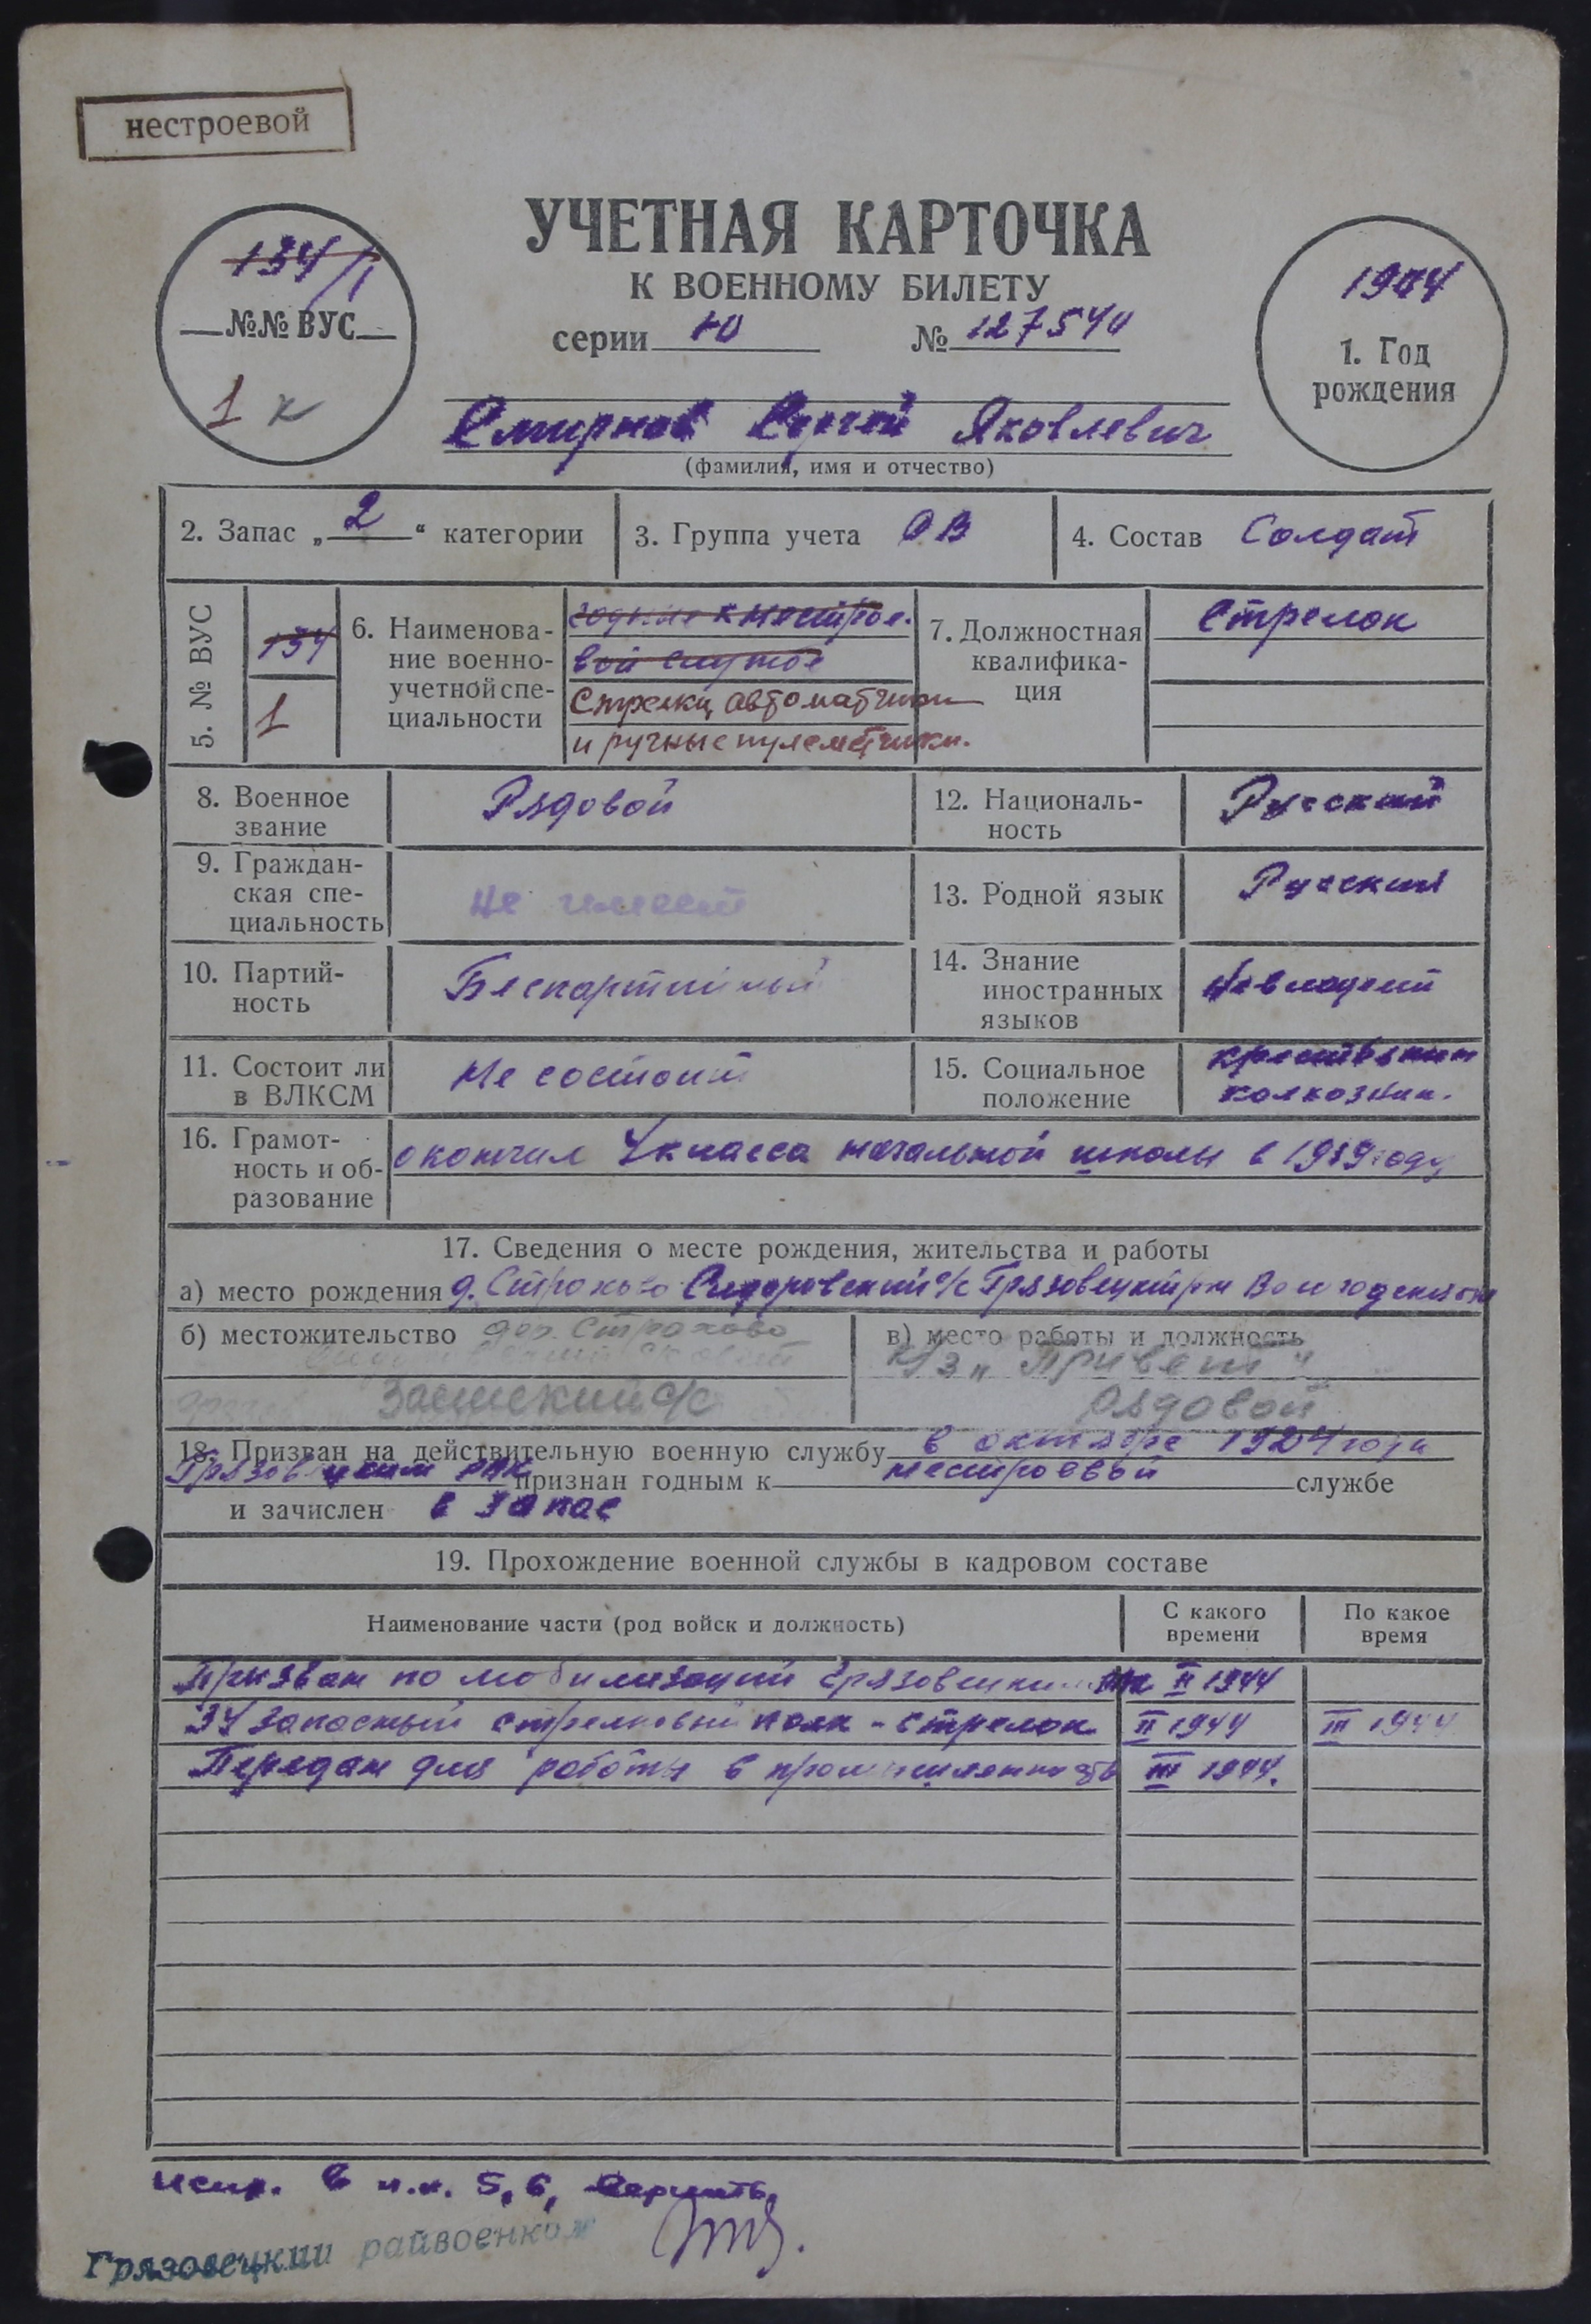 нестроевой
134/1
№№ ВУС
1 к
УЧЕТНАЯ КАРТОЧКА
К ВОЕННОМУ БИЛЕТУ
серии Ю № 127540
1. Год
рождения
Смирнов Сергей Яковлевич
(фамилия, имя и отчество)
2. Запас „2“ категории
3. Группа учета ОВ
4. Состав Солдат
5. № ВУС
134
1
6. Наименова-
ние военно-
учетной спе-
циальности
годные к нестрое-
вой службе
Стрелки, автоматчики
и ручные пулеметчики.
7. Должностная
квалифика-
ция
Стрелок
8. Военное
звание
Рядовой
12. Националь-
ность
Русский
9. Граждан-
ская спе-
циальность
Не имеет
13. Родной язык
Русский
10. Партий-
ность
Беспартийный
14. Знание
иностранных
языков
Не владеет
11. Состоит ли
в ВЛКСМ
Не состоит
15. Социальное
положение
крестьянин
колхозник.
16. Грамот-
ность и об-
разование
окончил 4 класса начальной школы в году
17. Сведения о месте рождения, жительства и работы
а) место рождения д. Страхово Сидоровский с/с Грязовецкий р-н Вологодской
б) местожительство дер. Страхово
с/с
в) место работы и должность
к/з „Привет“
рядовой
18. Призван на действительную военную службу в октябре года
Грязовецким РВК признан годным к нестроевой службе
и зачислен в запас
19. Прохождение военной службы в кадровом составе
Наименование части (род войск и должность)
С какого
времени
По какое
время
Призван по мобилизации Грязовецким РВК II 1944
34 запасный стрелковый полк - стрелок II 1944 III 1944
Передан для работы в промышленность III 1944.
испр. в п.п. 5, 6, верить.
Грязовецкий райвоенком